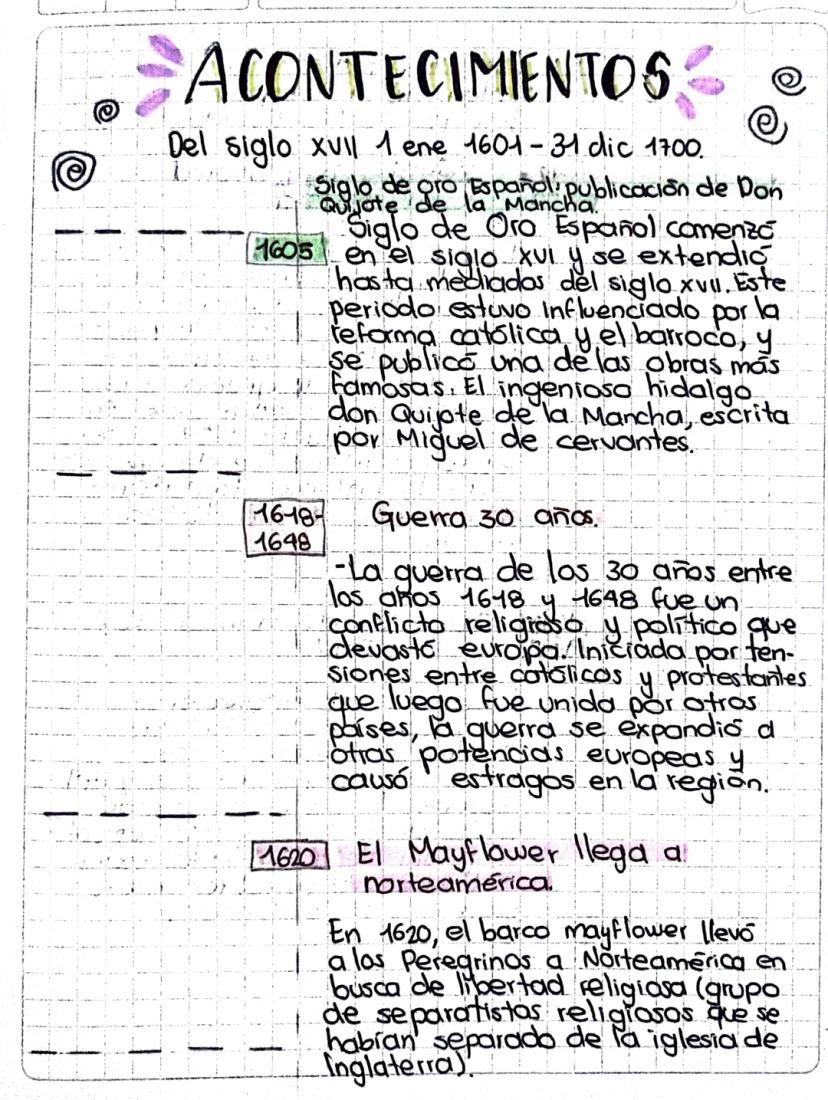 ACONTECIMIENTOS
Del siglo XVII 1 ene 1601 - 31 dic 1700.
Siglo de oro Español: publicación de Don
Quijote de la Mancha.
Siglo de Oro Español comenzó
1605
en el siglo XVI y se extendió
hasta mediados del siglo XVII. Este
periodo estuvo influenciado por la
reforma católica y el barroco, y
se publicó una de las obras más
famosas. El ingenioso hidalgo
don Quijote de la Mancha, escrita
por Miguel de cervantes.
1618-
1648
Guerra 30 años.
-La guerra de los 30 años entre
los años 1618 y 1648 fue un
conflicto religioso y político que
devastó europa. Iniciada por ten-
siones entre católicos y protestantes
que luego fue unida por otros
países, la guerra se expandió a
otras potencias europeas y
causó estragos en la región.
1620
El Mayflower llega a
norteamérica.
En 1620, el barco mayflower llevó
a los Peregrinos a Norteamérica en
busca de libertad religiosa (grupo
de separatistas religiosos que se
habían separado de la iglesia de
Inglaterra).